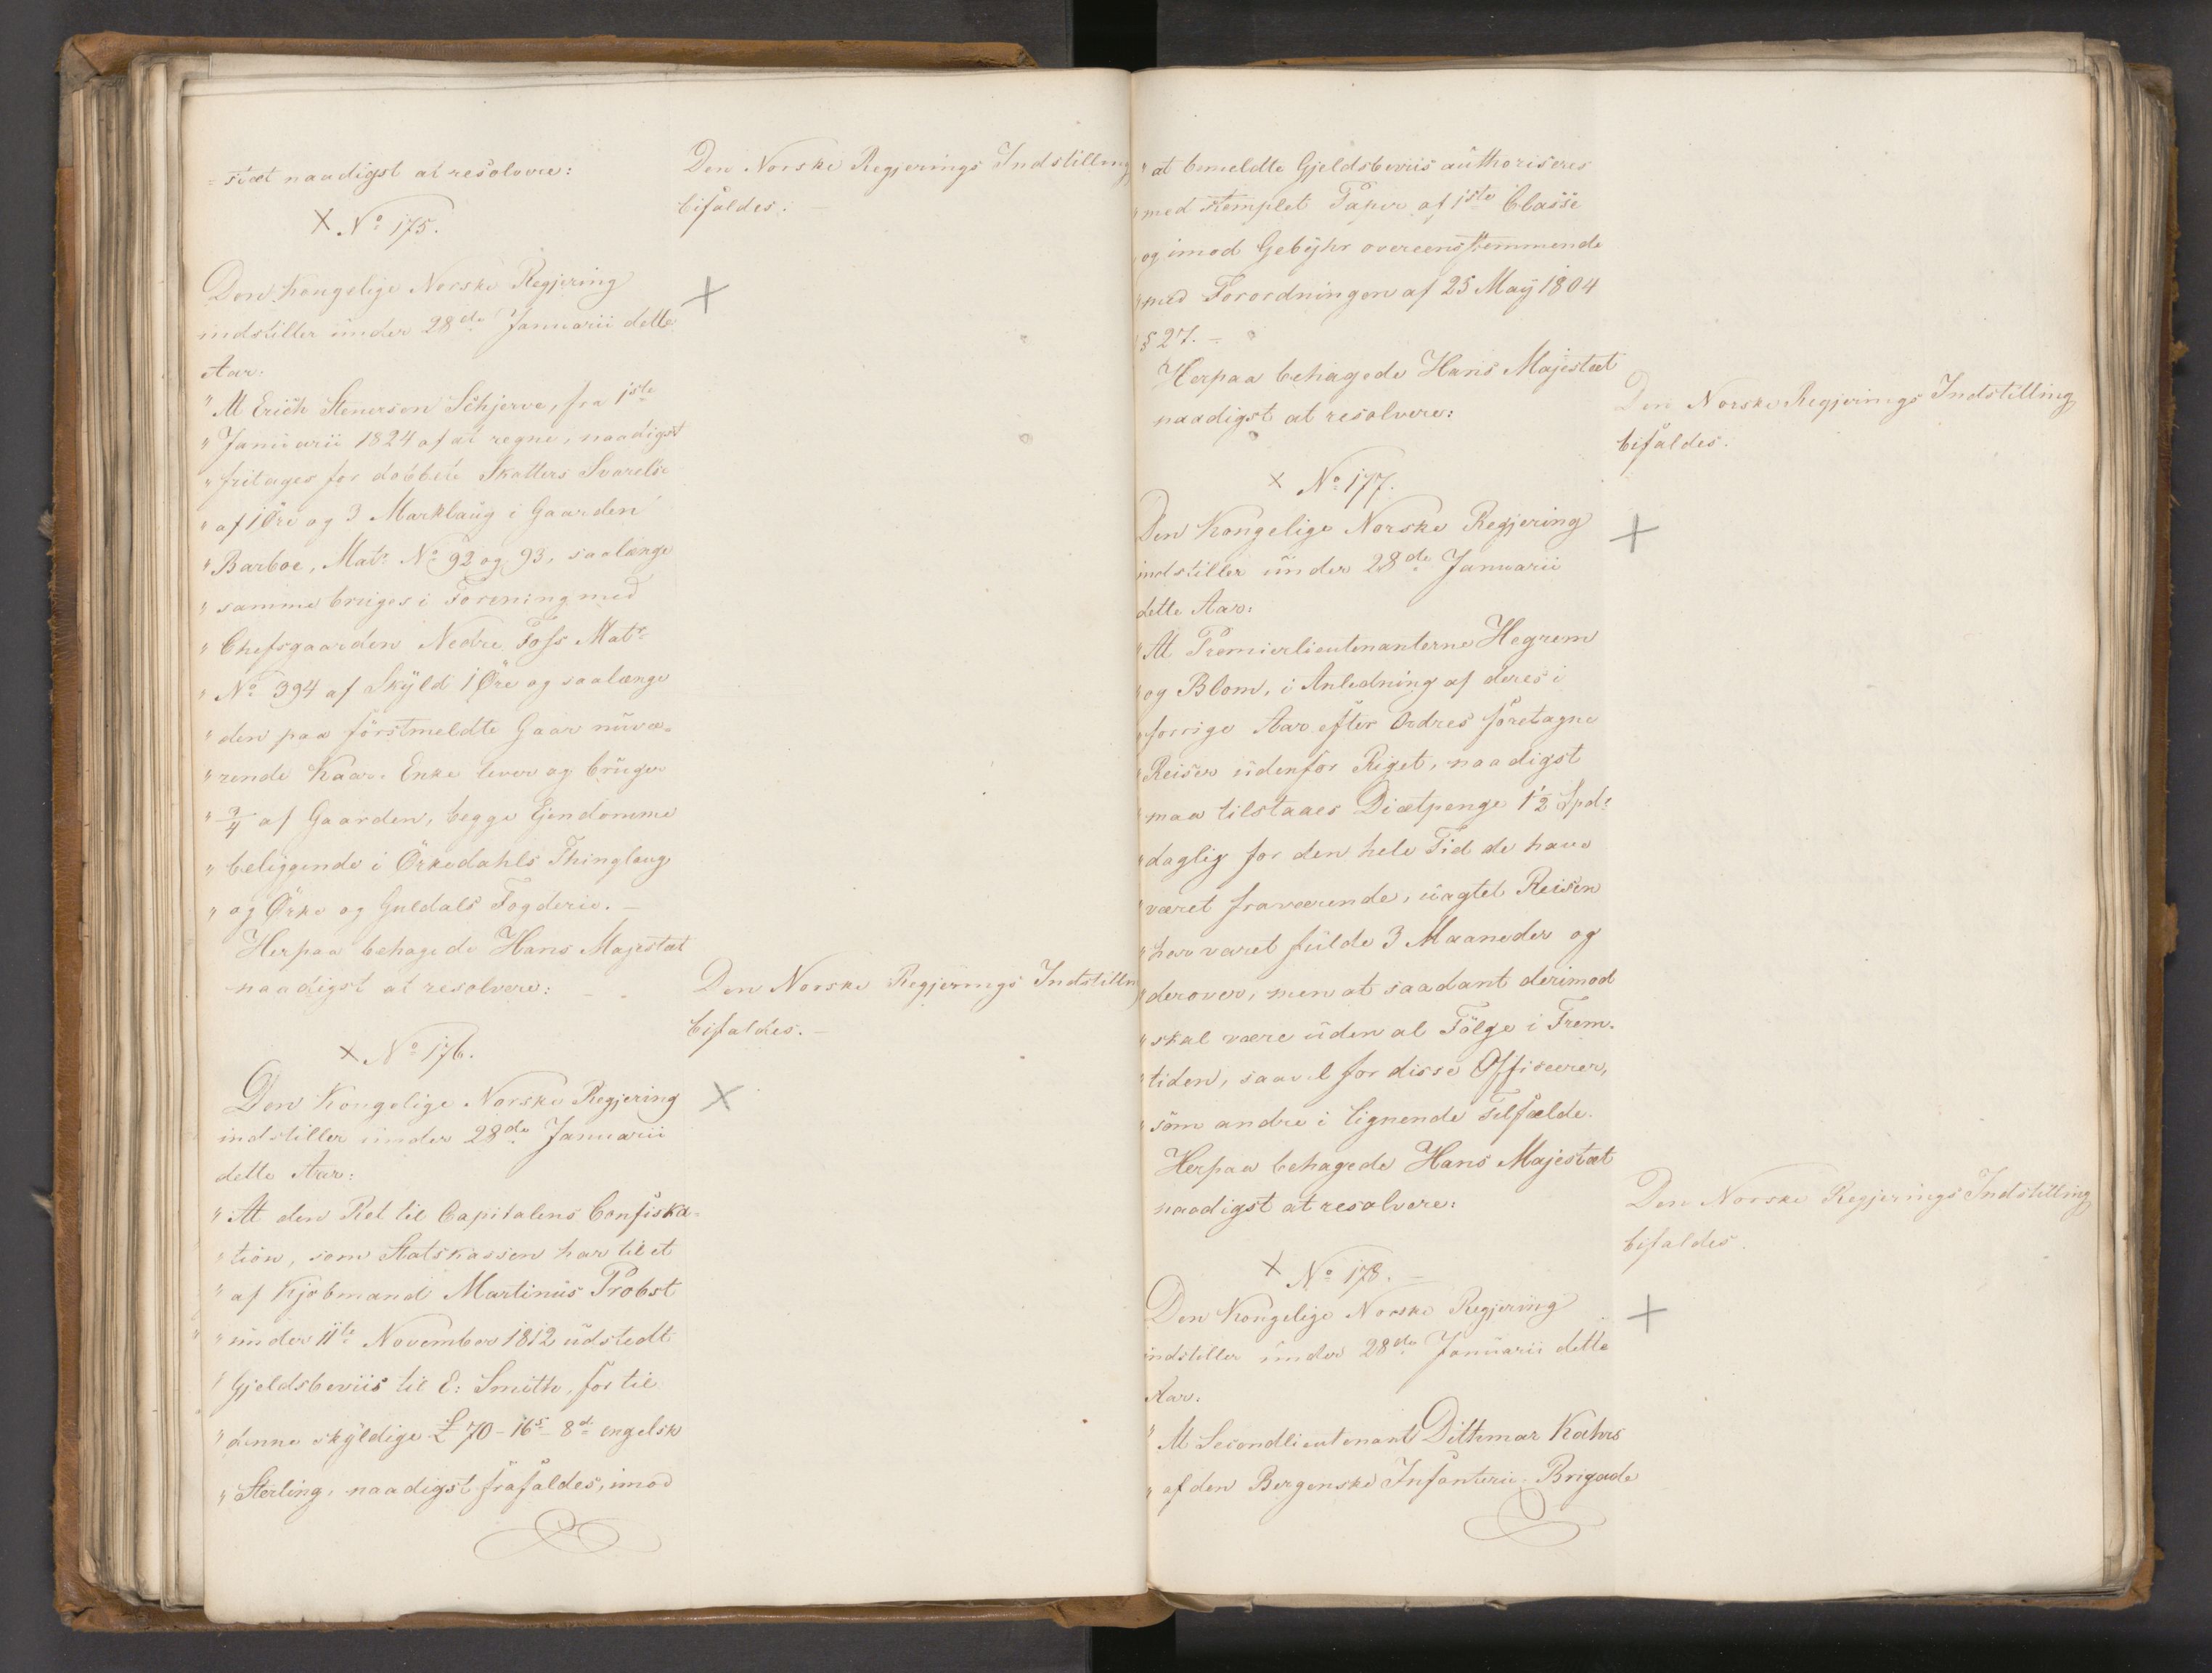 =stæt naadigst at resolvere:
Den Norske Regjerings Indstilling
bifaldes.
X No 175.
Den Kongelige Norske Regjering
indstiller under 28de Januarii dette
Aar:
"At Erich Stenersen Schjerve, fra 1ste
"Januarii 1824 af at regne, naadigst
"fritages for dobbelt Skatters Svarelse
"af 1 Øre og 3 Marklaug i Gaarden
"Barboe, Matr No 92 og 93, saalænge
"samme bruges i Forening med
"Chefsgaarden Nedre Foss Matr
"No 394 af Skyld 1 Øre og saalænge
"den paa förstmeldte Gaar nuvæ=
"rende Kaar-Enke lever og bruger
"3/4 af Gaarden, begge Ejendomme
"beliggende i Örkedahls Thinglaug
"og Örke og Guldals Fogderie.—
Herpaa behagede Hans Majestæt
naadigst at resolvere:
Den Norske Regjerings Indstilln
bifaldes.—
X No 176.
Den Kongelige Norske Regjering
indstiller under 28de Januarii
dette Aar:
"At den Ret til Capitalens Confiska=
"tion, som Statskassen har til et
"af Kjøbmand Martinus Probst
"under 11te November 1812 udstedt
"Gjeldsbeviis til E: Smith, for til
"denne skyldige £ 70-16s-8d engelsk
"Sterling, naadigst frafaldes, imod
"at bemeldte Gjeldsbeviis authoriseres
"med stemplet Papir af 1ste Classe
"og imod Gebyhr overeensstemmende
"med Forordningen af 25 May 1804
"§ 27.=
Herpaa behagede Hans Majestæt
naadigst at resolvere:
Den Norske Regjerings Indstilling
bifaldes.
X No 177.
Den Kongelige Norske Regjering
indstiller under 28de Januarii
dette Aar:
"At Premierlieutenanterne Hegrem
"og Blom, i Anledning af deres i
"forrige Aar efter Ordres foretagne
"Reiser udenfor Riget, naadigst
"maa tilstaaes Diætpenge 1 1/2 Spd:
"daglig for den hele Tid de have
"været fraværende, uagtet Reisen
"har varet fulde 3 Maaneder og
"derover, men at saadant derimod
"skal være uden al Fölge i Frem=
"tiden, saavel for disse Officerer,
"som andre i lignende Tilfælde.
Herpaa behagede Hans Majestæt
naadigst at resolvere:
Den Norske Regjerings Indstilling
bifaldes.
X No 178.—
Den Kongelige Norske Regjering
indstiller under 28de Januarii dette
Aar:
"At Secondlieutenant Dithmar Kahrs
"af den Bergenske Infanterie-Brigade